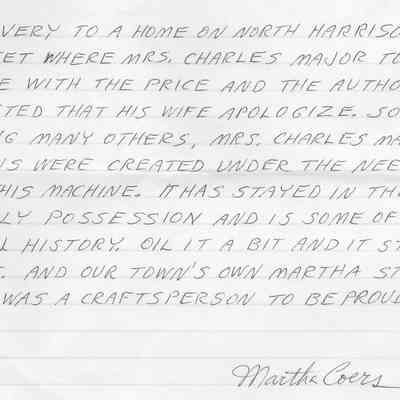 VERY TO A HOME ON NORTH HARRISO
EET WHERE MRS. CHARLES MAJOR TO
E WITH THE PRICE AND THE AUTHO
STED THAT HIS WIFE APOLOGIZE. SO
NG MANY OTHERS, MRS. CHARLES MA
NS WERE CREATED UNDER THE NEE
THIS MACHINE. IT HAS STAYED IN THE
LY POSSESSION AND IS SOME OF
L HISTORY. OIL IT A BIT AND IT ST
. AND OUR TOWN'S OWN MARTHA ST
WAS A CRAFTSPERSON TO BE PROUD
Martha Coers